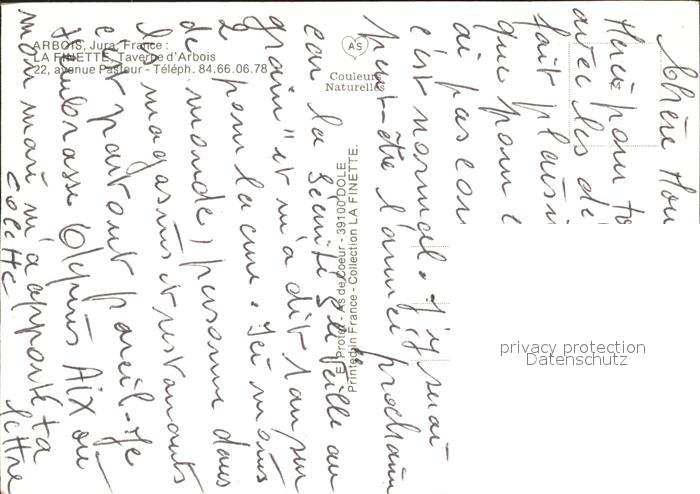 ARBOIS, Jura, France :
LA FINETTE, Taverne d'Arbois
22, avenue Pasteur - Téléph. 84.66.06.78
AS
Couleurs
Naturelles
E. Protet - As de Coeur - 39100 DOLE
Printed in France - Collection LA FINETTE.
Chère
Merci pour
avec les de
fait plaisi
que pour
ai pas con
c'est normal. J'y serai
peut-être l'année prochaine
car la Sécurité Se veille au
grain" et m'a dit 1 an sur
2 pour la cure. Ici moins
de monde, personne dans
les magasins et restaurants
c'est partout pareil. Je
t'embrasse Aix où
mon mari m'a apporté ta
lettre
Colette
privacy protection
Datenschutz